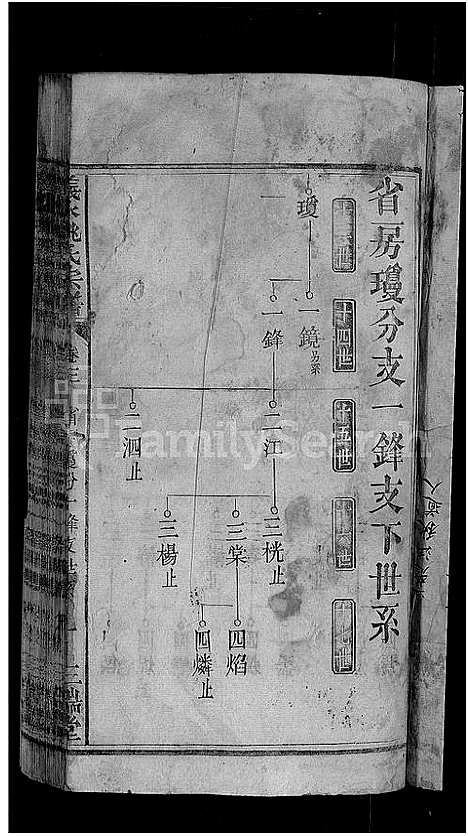 省一房瓊分支一鋒支下世系
十三世
十四世
十五世
十六世
十七世
瓊
一鏡 另系
一鋒
二江
二泗止
三桄止
三棠
三楊止
四焰
四燐止
義水姚氏宗譜
卷三
FamilySearch